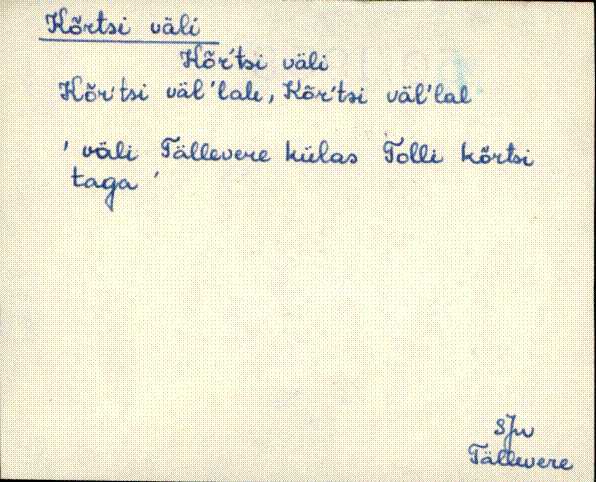 Kõrtsi väli
Kõr'tsi väli
Kõr'tsi väl'lale, Kõr'tsi väl'lal
' väli Tällevere külas Tolli kõrtsi
taga '
SJn
Tällevere